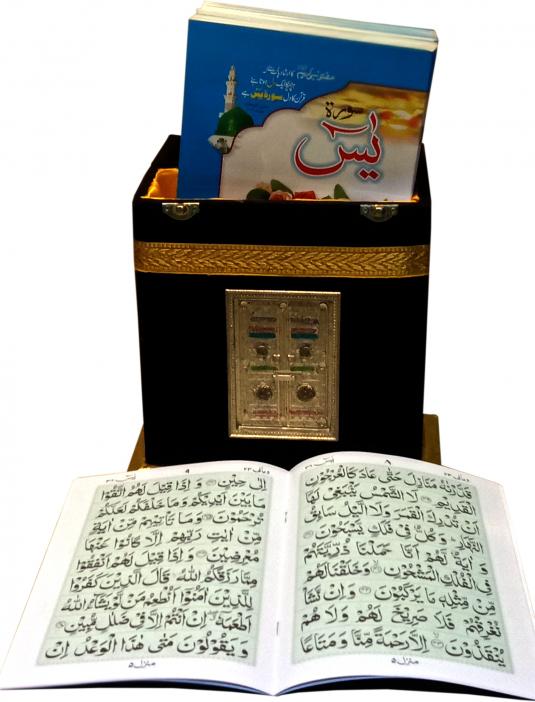 ہر چیز کا ایک دل ہوتا ہے
قرآن کا دل سورۃ یٰسٓ ہے
سورة
یٰسٓ
ومالی ٢٣ ٨ یٰسٓ ٣٦
قَدَّرْنٰهُ مَنَازِلَ حَتّٰى عَادَ كَالْعُرْجُوْنِ
الْقَدِيْمِ ۝ لَا الشَّمْسُ يَنْۢبَغِيْ لَهَآ
اَنْ تُدْرِكَ الْقَمَرَ وَلَا الَّيْلُ سَابِقُ
النَّهَارِ ؕ وَكُلٌّ فِيْ فَلَكٍ يَّسْبَحُوْنَ ۝
وَ اٰيَةٌ لَّهُمْ اَنَّا حَمَلْنَا ذُرِّيَّتَهُمْ
فِي الْفُلْكِ الْمَشْحُوْنِ ۝ وَخَلَقْنَا لَهُمْ
مِّنْ مِّثْلِهٖ مَا يَرْكَبُوْنَ ۝ وَاِنْ نَّشَاْ
نُغْرِقْهُمْ فَلَا صَرِيْخَ لَهُمْ وَلَا هُمْ
يُنْقَذُوْنَ ۝ اِلَّا رَحْمَةً مِّنَّا وَمَتَاعًا
منزل ۵
ومالی ٢٣ ٩ یٰسٓ ٣٦
اِلٰى حِيْنٍ ۝ وَ اِذَا قِيْلَ لَهُمُ اتَّقُوْا
مَا بَيْنَ اَيْدِيْكُمْ وَمَا خَلْفَكُمْ لَعَلَّكُمْ
تُرْحَمُوْنَ ۝ وَمَا تَاْتِيْهِمْ مِّنْ اٰيَةٍ
مِّنْ اٰيٰتِ رَبِّهِمْ اِلَّا كَانُوْا عَنْهَا
مُعْرِضِيْنَ ۝ وَ اِذَا قِيْلَ لَهُمْ اَنْفِقُوْا
مِمَّا رَزَقَكُمُ اللّٰهُ ۙ قَالَ الَّذِيْنَ كَفَرُوْا
لِلَّذِيْنَ اٰمَنُوْٓا اَنُطْعِمُ مَنْ لَّوْ يَشَآءُ اللّٰهُ
اَطْعَمَهٗٓ ۖ اِنْ اَنْتُمْ اِلَّا فِيْ ضَلٰلٍ مُّبِيْنٍ ۝
وَ يَقُوْلُوْنَ مَتٰى هٰذَا الْوَعْدُ اِنْ
منزل ۵